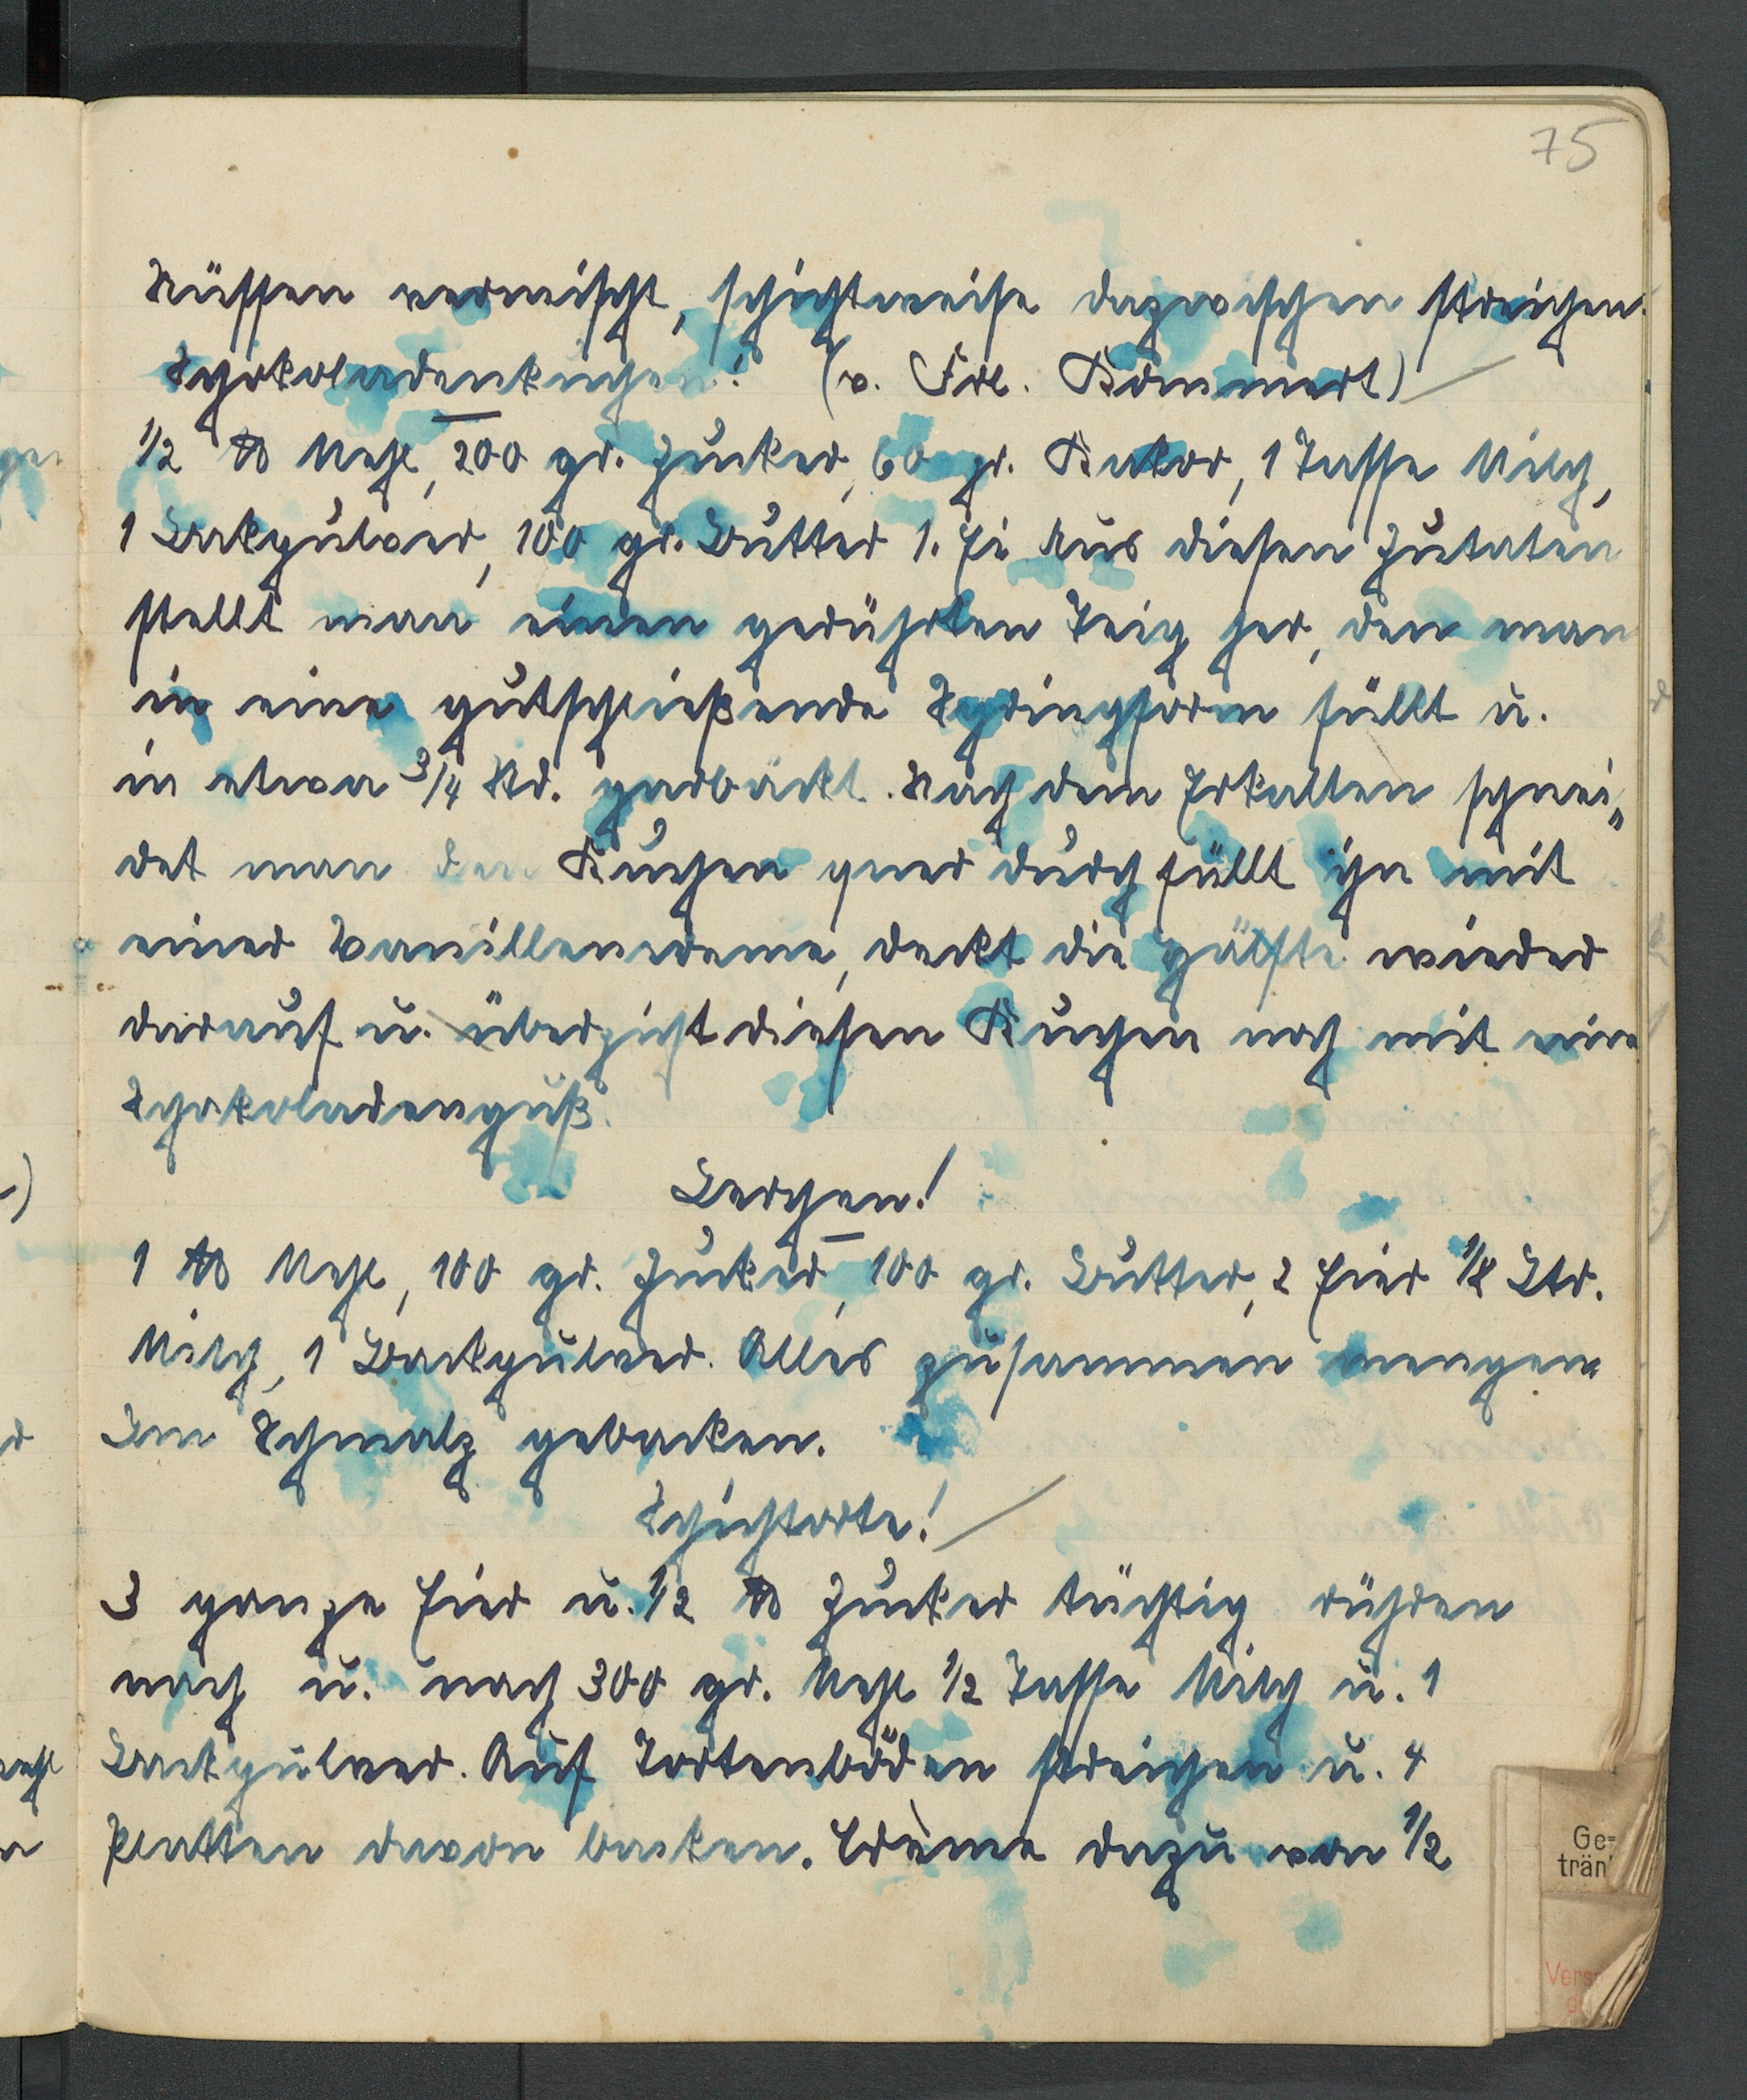 75
Nüssen vermischt, schichtweise dazwischen streichen.
Schokoladenkuchen! (v. Frl. Kommert)
1/2 ℔ Mehl, 200 gr. Zucker, 60 gr. Kakao, 1 Tasse Milch,
1 Backpulver, 100 gr. Butter 1. Ei Aus diesen Zutaten
stellt man einen gerührten Teig her, den man
in eine gutschließende Springform füllt u.
in etwa 3/4 Std. garbäckt. Nach dem Erkalten schnei„
det man den Kuchen quer durch füllt ihn mit
einer Vanillencreme, deckt die Hälfte wieder
darauf u. überzieht diesen Kuchen noch mit eine
Schokoladenguß.
Lerchen!
1 ℔ Mehl, 100 gr. Zucker, 100 gr. Butter, 2 Eier 1/8 Ltr.
Milch, 1 Backpulver. Alles zusammen mengen
Im Schmalz gebacken.
Schichtorte!
3 ganze Eier u. 1/2 ℔ Zucker tüchtig rühren
nach u. nach 300 gr. Mehl 1/2 Tasse Milch u. 1
Backpulver. Auf Tortenböden streichen u. 4
Platten davon backen. Crème dazu von 1/2
Ge=
trän
Vers